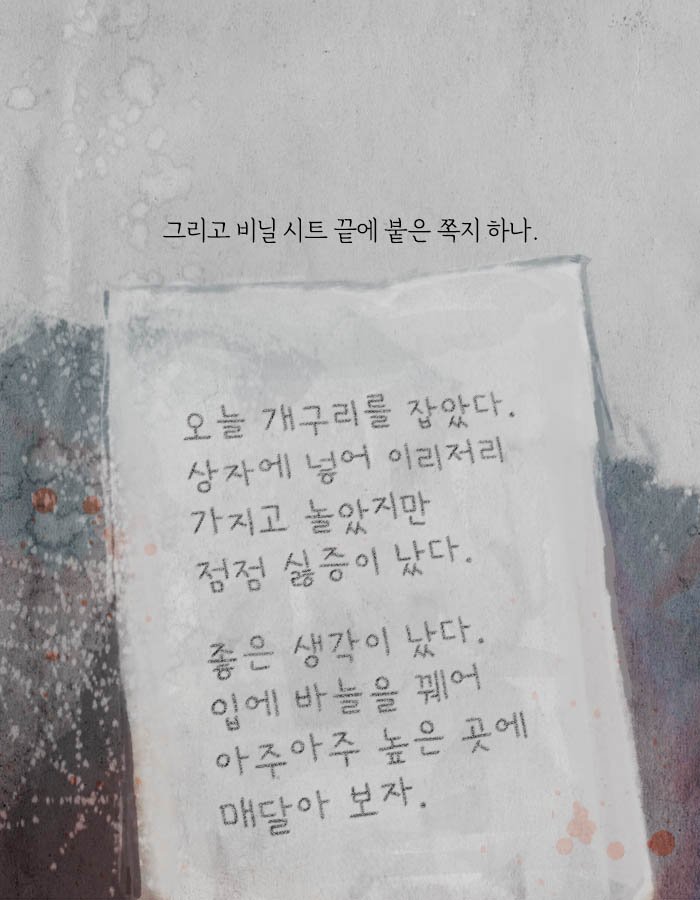 그리고 비닐 시트 끝에 붙은 쪽지 하나.
오늘 개구리를 잡았다.
상자에 넣어 이리저리
가지고 놀았지만
점점 싫증이 났다.
좋은 생각이 났다.
입에 바늘을 꿰어
아주아주 높은 곳에
매달아 보자.